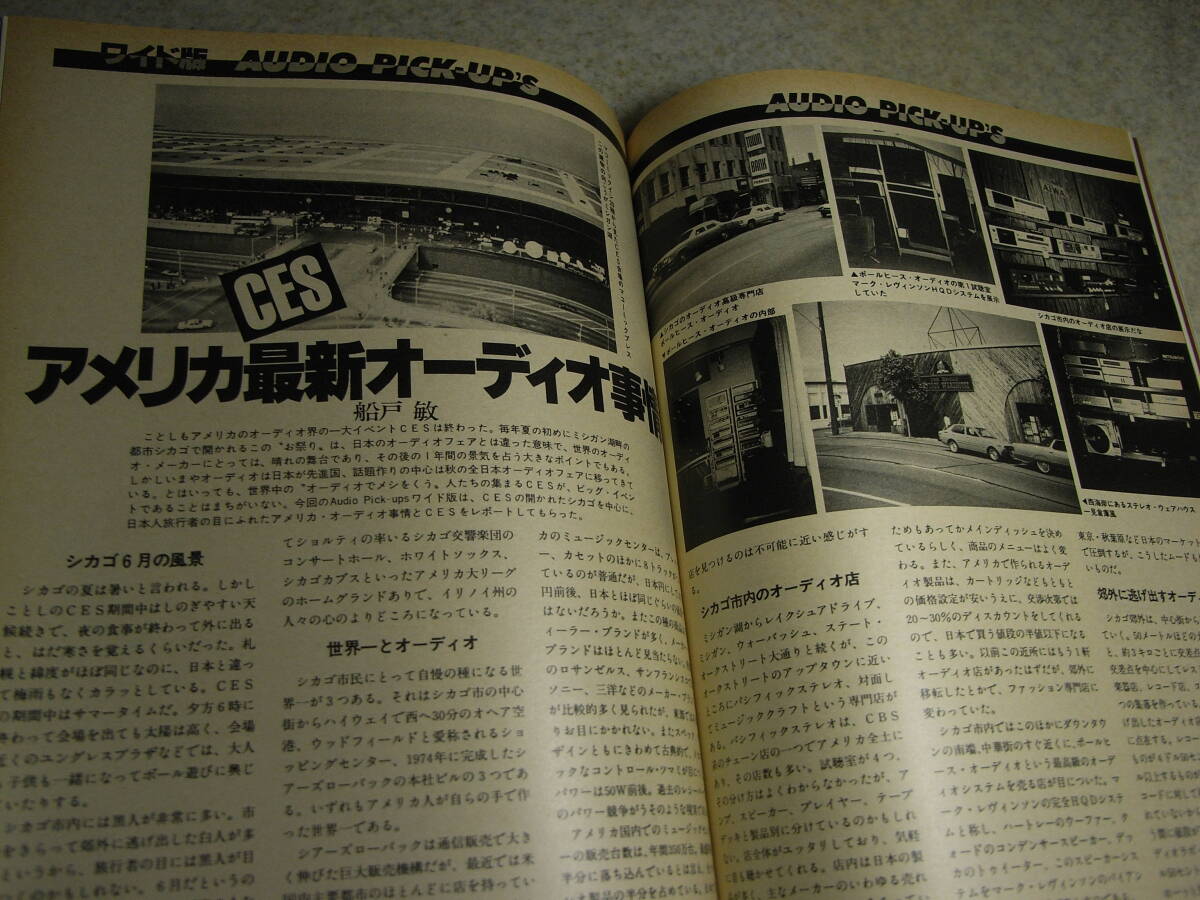 ワイド版 AUDIO PICK-UP'S
CES
アメリカ最新オーディオ事情
船戸 敏
ことしもアメリカのオーディオ界の一大イベントCESは終わった。毎年夏の初めにミシガン湖畔の
都市シカゴで開かれるこの〝お祭り〟は、日本のオーディオフェアとは違った意味で、世界のオーディ
オ・メーカーにとっては、晴れの舞台であり、その後の1年間の景気を占う大きなポイントでもある。
しかしいまやオーディオは日本が先進国、話題作りの中心は秋の全日本オーディオフェアに移ってきて
いる。とはいっても、世界中の〝オーディオでメシをくう〟人たちの集まるCESが、ビッグ・イベン
トであることはまちがいない。今回のAudio Pick-upsワイド版は、CESの開かれたシカゴを中心に、
日本人旅行者の目にふれたアメリカ・オーディオ事情とCESをレポートしてもらった。
シカゴ6月の風景
シカゴの夏は暑いと言われる。しかし
ことしのCES期間中はしのぎやすい天
候続きで、夜の食事が終わって外に出る
と、はだ寒さを覚えるくらいだった。札
幌と緯度がほぼ同じなのに、日本と違っ
て梅雨もなくカラッとしている。CES
の期間中はサマータイムだ。夕方6時に
終わって会場を出ても太陽は高く、会場
近くのユングレスプラザなどでは、大人
も子供も一緒になってボール遊びに興じ
ていたりする。
シカゴ市内には黒人が非常に多い。市
をきらって郊外に逃げ出した白人が多
というから、旅行者の目には黒人が目
くのかもしれない。6月だというの
てショルティの率いるシカゴ交響楽団の
コンサートホール、ホワイトソックス、
シカゴカブスといったアメリカ大リーグ
のホームグランドありで、イリノイ州の
人々の心のよりどころになっている。
世界一とオーディオ
シカゴ市民にとって自慢の種になる世
界一が3つある。それはシカゴ市の中心
街からハイウェイで西へ30分のオヘア空
港、ウッドフィールドと愛称されるショ
ッピングセンター、1974年に完成したシ
アーズローバックの本社ビルの3つであ
る。いずれもアメリカ人が自らの手で作
った世界一である。
シアーズローバックは通信販売で大き
く伸びた巨大販売機構だが、最近では米
国内主要都市のほとんどに店を持ってい
カのミュージックセンターは、ア
、カセットのほかに8トラック
ているのが普通だが、日本円にして
円前後、日本とほぼ同じぐらいの
はないだろうか。またこの種の
ィーラー・ブランドが多く、メー
ブランドはほとんど見当たらない。
のロサンゼルス、サンフランシスコ
ソニー、三洋などのメーカー・ブラ
が比較的多く見られたが、東部では
りお目にかかれない。またスペック
ザインともにきわめて古典的で、
ックなコントロール・ツマミが目に
パワーは50W前後。過去のレシー
のパワー競争がうそのような
アメリカ国内でのミュージック
ーの販売台数は、年間350万台。
半分に落ち込んでいるとは言え、
オ製品の半分を占めている。
AUDIO PICK-UP'S
TOWN
BANK
AIWA
▲シカゴのオーディオ高級専門店
ポールヒース・オーディオ
◀ポールヒース・オーディオの内部
▲ポールヒース・オーディオの第1試聴室
マーク・レヴィンソンHQDシステムを展示
していた
シカゴ市内のオーディオ店の展示だな
◀西海岸にあるステレオ・ウェアハウス
一見倉庫風
店を見つけるのは不可能に近い感じがす
る。
シカゴ市内のオーディオ店
ミシガン湖からレイクシュアドライブ、
ミシガン、ウォーバッシュ、ステート・
オークストリート大通りと続くが、この
オークストリートのアップタウンに近い
ところにパシフィックステレオ、対面し
てミュージッククラフトという専門店が
ある。パシフィックステレオは、CBS
系のチェーン店の一つでアメリカ全土に
あり、その店数も多い。試聴室が4つ、
その分け方はよくわからなかったが、ア
ンプ、スピーカー、プレイヤー、テープ
デッキと製品別に分けているのかもしれ
ない。店全体がユッタリしており、気軽
に音も聴かせてくれる。店内は日本の製
品が多く、主なメーカーのいわゆる売れ
ためもあってかメインディッシュを決め
ているらしく、商品のメニューはよく変
わる。また、アメリカで作られるオーデ
ィオ製品は、カートリッジなどもともと
の価格設定が安いうえに、交渉次第では
20~30%のディスカウントをしてくれる
ので、日本で買う値段の半値以下になる
ことも多い。以前この近所にはもう1軒
オーディオ店があったはずだが、郊外に
移転したとかで、ファッション専門店に
変わっていた。
シカゴ市内ではこのほかにダウンタウ
ンの南端、中華街のすぐ近くに、ポールヒ
ース・オーディオという最高級のオーデ
ィオシステムを売る店が目についた。マ
ーク・レヴィンソンの完全HQDシステ
ムと称し、ハートレーのウーファー、ク
ォードのコンデンサースピーカー、デッ
カのトゥイーター、このスピーカーシス
テムをマーク・レヴィンソンのバイアン
東京・秋葉原など日本のマーケット
で圧倒するが、こうしたムードも
いものだ。
郊外に逃げ出すオーデ
シカゴ郊外は、中心街から
ていく。50メートルほどの
と、約3キロごとに交差
交差点を中心にしてレス
楽器店、レコード店、
つの集落を作っている
げ出したオーディオ
に点在する。レコー